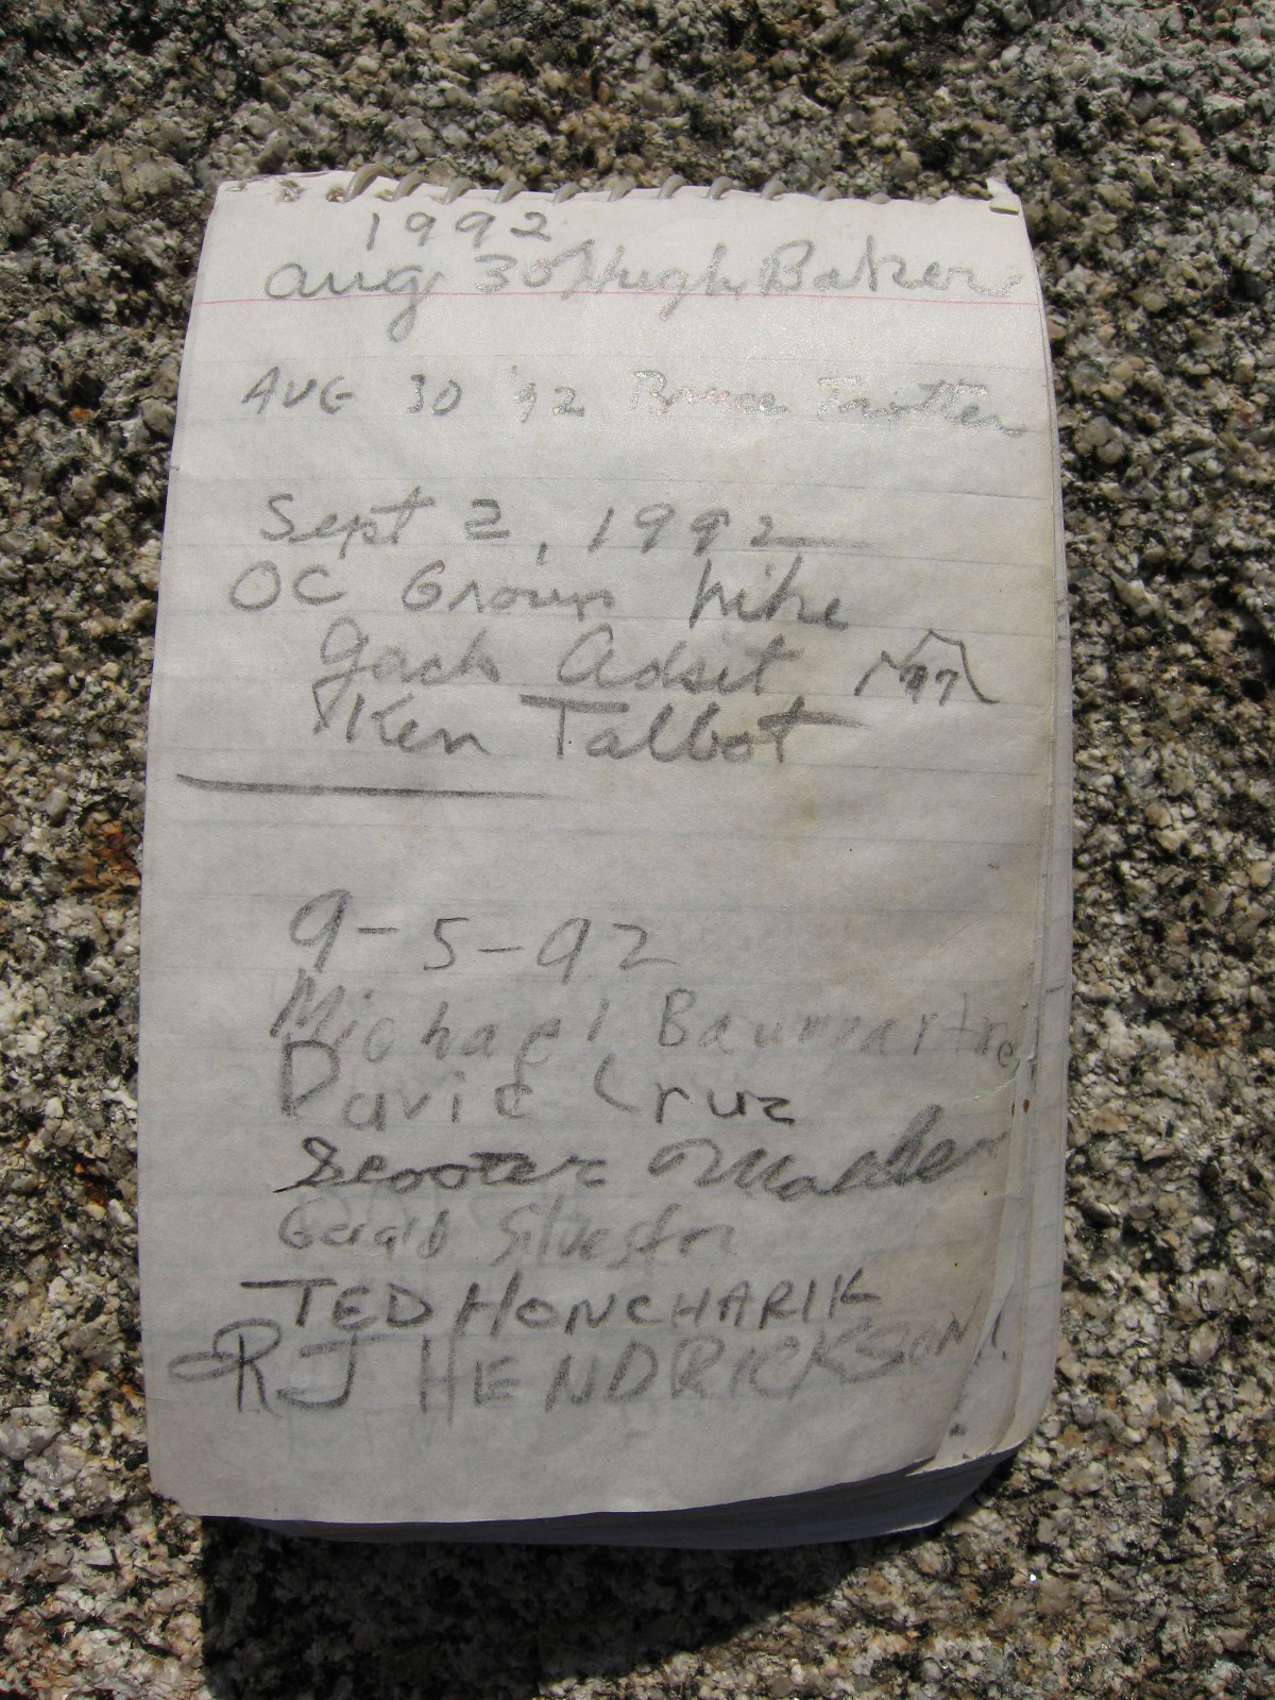 1992
Aug 30 Hugh Baker
AUG 30 '92 Bruce Trotter
Sept 2, 1992
OC Group hike
Jack Adsit
Ken Talbot
9-5-92
Michael
David Cruz
Scooter
Gerald Silvestri
TED HONCHARIK
RJ HENDRICKSON!